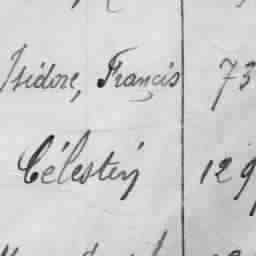 Isidore, Francis 73
Célestin 129